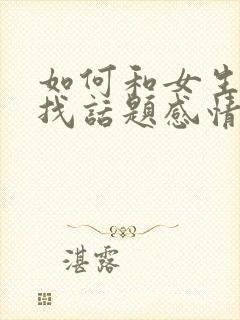 如何和女生
找話題感情
湛露